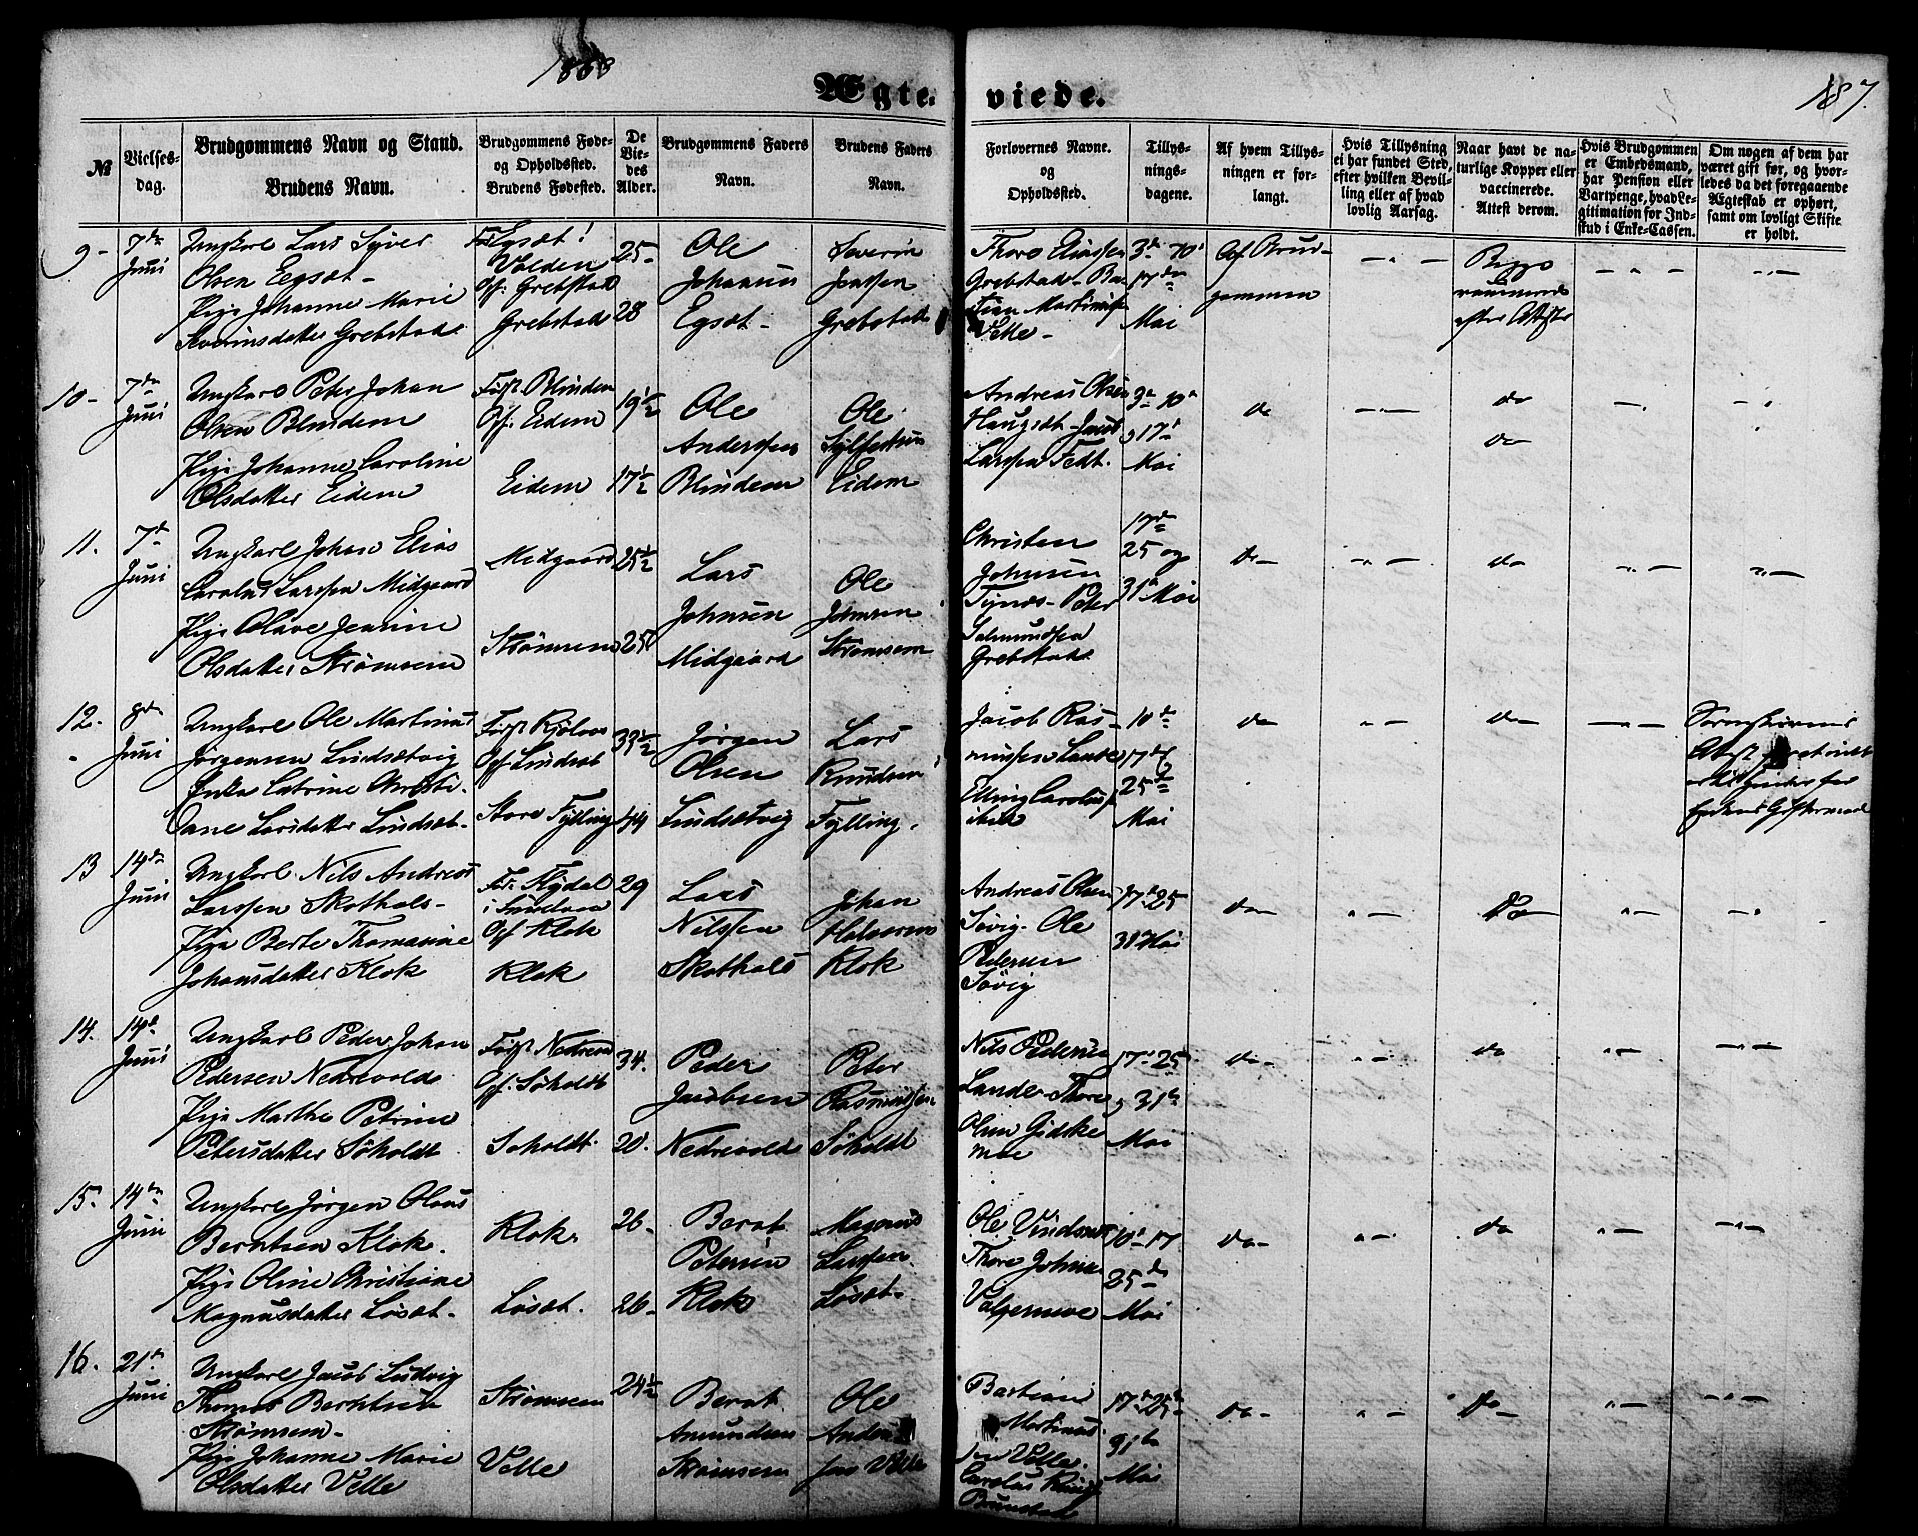 1868
187.
Ægte-viede.
№
Vielses-
dag.
Brudgommens Navn og Stand.
Brudens Navn.
Brudgommens Føde-
og Opholdssted.
Brudens Fødested.
De
Vie-
des
Alder.
Brudgommens Faders
Navn.
Brudens Faders
Navn.
Forlovernes Navne.
og
Opholdssted.
Tillys-
nings-
dagene.
Af hvem Tillys-
ningen er for-
langt.
Hvis Tillysning
ei har fundet Sted,
efter hvilken Bevil-
ling eller af hvad
lovlig Aarsag.
Naar havt de na-
turlige Kopper eller
vaccinerede.
Attest derom.
Hvis Brudgommen
er Embedsmand,
har Pension eller
Vartpenge, hvad Le-
gitimation for Ind-
skud i Enke-Cassen.
Om nogen af dem har
været gift før, og hvor-
ledes da det foregaaende
Ægteskab er ophørt,
samt om lovligt Skifte
er holdt.
9-
7de
Juni
Ungkarl Lars Syver
Olsen Eegsæt-
Pige Johanne Marie
Severinsdatter Grebstad
Egsæt!
Volden
Grebstad
Grebstad
25-
28
Ole
Johannes
Egsæt-
Severin
Jenssen
Grebstad
Thore Eliassen
Grebstad- Bas-
tian Martinus
Velle-
3de 10de
17de
Mai
Af Brud-
gommen
Begge
vaccinerede
efter Attester
10-
7de
Juni
Ungkarl Peter Johan
Olsen Blindem
Pige Johanne Caroline
Olsdatter Eidem
Født Blindem
Opf. Eidem
Eidem
19½
17½
Ole
Anderssen
Blindem
Ole
Sylfestsen
Eidem
Andreas Olsen
Haugsæt- Jacob
Larssen Fedt.
3de 10de
og 17de
Mai
do
do
do
11.
7de
Juni
Ungkarl Johan Elias
Carolus Larssen Midgaard
Pige Olave Jensine
Olsdatter Strømsem
Midgaard
Strømsem
25½
25
Lars
Johnsen
Midgaard
Ole
Johnsen
Strømsem
Christen
Johnsen
Tynes- Peter
Salmundsen
Grebstad
17de
25 og
31te Mai
do-
do
12.
8de
Juni
Ungkarl Ole Martinus
Jørgensen Lindsætvig
Enke Catrine Christi-
ane Larsdatter Lindsæt-
Opf. Lindsæt
Store Fylling
33½
44
Jørgen
Olsen
Lindsætvig
Lars
Knudsen
Fylling.
Jacob Ras-
mussen Lande
Elling Carolus
ibid
10de
17de
25de
Mai
do
do
13
14de
Juni
Ungkarl Nils Andreas
Larssen Skothols-
Pige Berte Thomasine
Johansdatter Klok
Opf. Klok
Klok
29
Lars
Nilssen
Skothols
Johan
Halvorsen
Klok
Andreas Olsen
Søvig. Ole
Pedersen
Søvig
17de 25
31te Mai
do-
do
14.
14de
Juni
Ungkarl Peder Johan
Pedersen Nedrevold
Pige Marthe Petrine
Petersdatter Søholdt
Født Nedrevold
Opf. Søholdt
Søholdt.
34.
20.
Peder
Jacobsen
Nedrevold
Peter
Rasmussen
Søholdt
Nils Pedersen
Lande- Thore
Olsen Gidske
moe
17de 25de
og 31te
Mai
do-
do
15.
14de
Juni
Ungkarl Jørgen Olaus
Berntsen Klok.
Pige Oline Christine
Magnusdatter Løset-
Klok
Løset.
26-
26-
Bernt
Petersen
Klok
Magnus
Larssen
Løset-
Ole Vindsnes
Thore Johnsen
Valgermoe
10de 17
25de
Mai
do-
do
16.
21de
Juni
Ungkarl Jacob Ludvig
Thomas Berntsen
Strømsem-
Pige Johanne Marie
Olsdatter Velle
Strømsem
Velle
24½
Bernt
Amundsen
Strømsem
Ole
Anders-
sen Velle
Bastian
Martinus-
sen Velle.
Carolus
17de 25de
31te
Mai
do-
do-